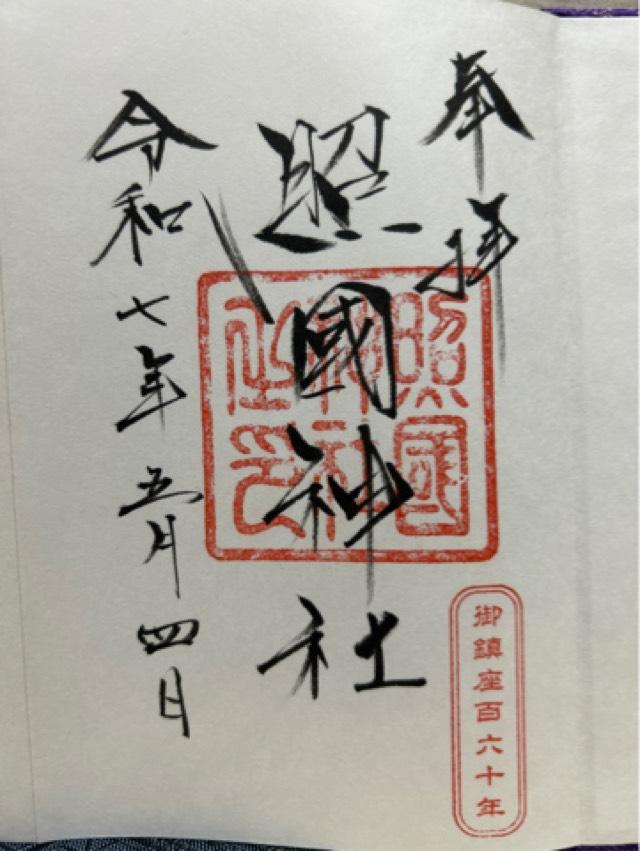 奉拝
照國神社
照國
神社
之印
御鎮座百六十年
令和七年五月四日